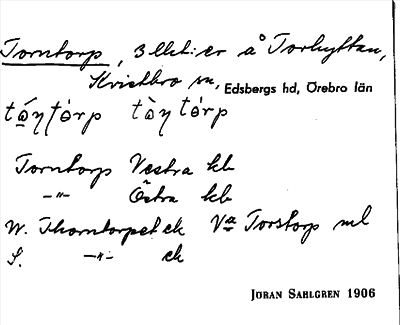 Torntorp, 3 lht:er å Torhyttan,
Kvistbro sn, Edsbergs hd, Örebro län
Torntorp Västra kb
—"— Östra kb
W. Thorntorpet ek Va Torstorp ml
S. —"— ek
JÖRAN SAHLGREN 1906